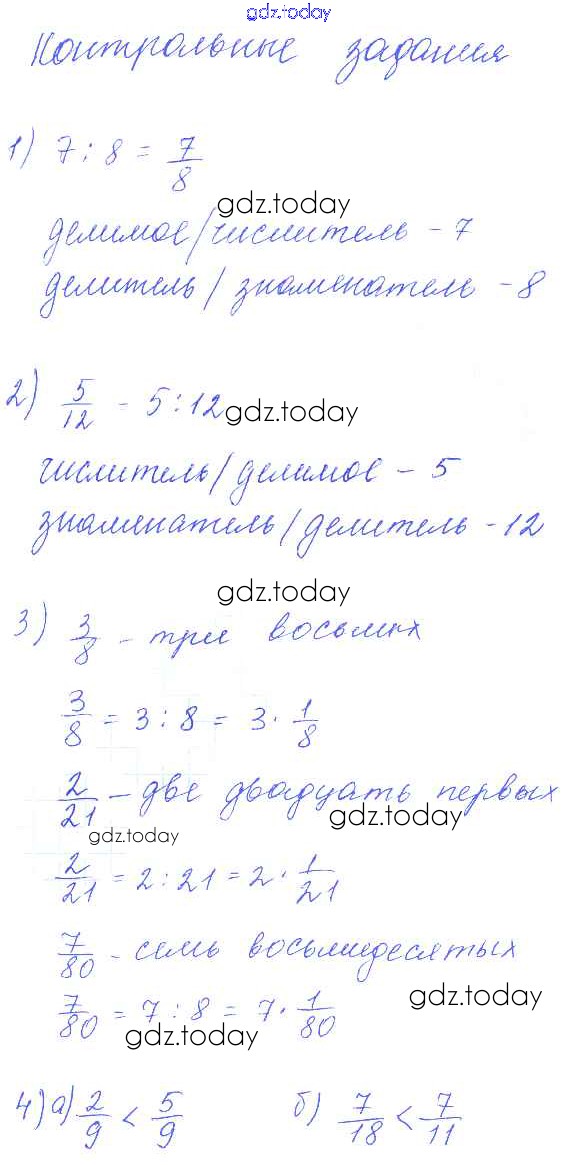 gdz.today
Контрольные задания
1) 7 : 8 = 7/8
gdz.today
делимое/числитель - 7
делитель / знаменатель - 8
2) 5/12 - 5 : 12
gdz.today
числитель/делимое - 5
знаменатель/делитель - 12
gdz.today
3) 3/8 - три восьмых
3/8 = 3 : 8 = 3 · 1/8
2/21 - две двадцать первых
gdz.today
gdz.today
2/21 = 2 : 21 = 2 · 1/21
7/80 - семь восьмидесятых
gdz.today
7/80 = 7 : 8 = 7 · 1/80
gdz.today
4) а) 2/9 < 5/9 б) 7/18 < 7/11